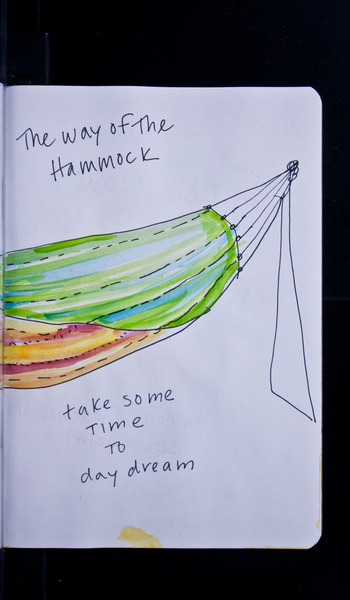 The way of the
Hammock
take some
Time
To
day dream